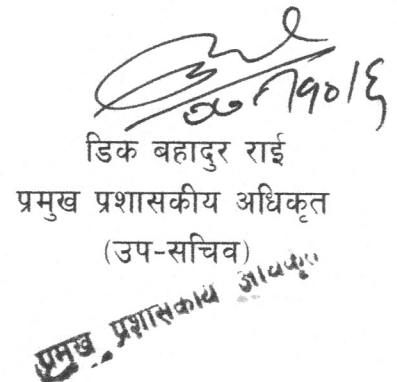 डिक बहादुर राई
प्रमुख प्रशासकीय अधिकृत
(उप-सचिव)
प्रमुख प्रशासकीय